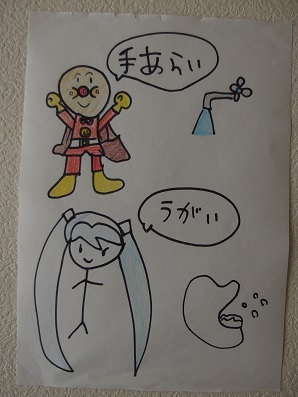 手あらい
うがい